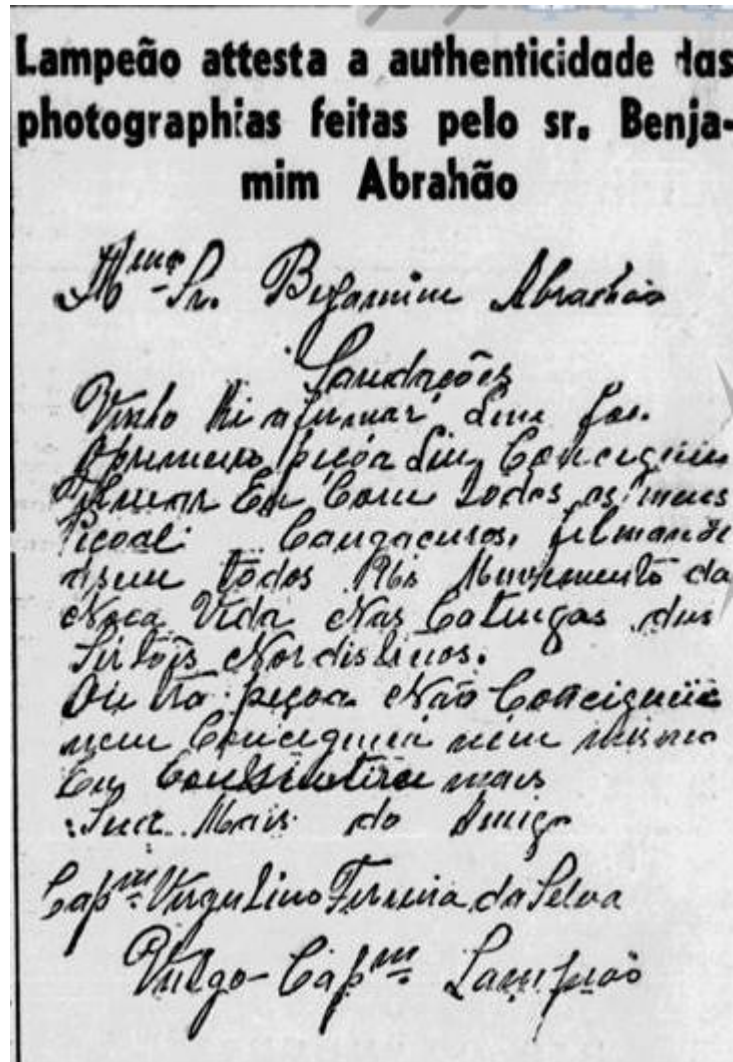 Lampeão attesta a authenticidade das
photographias feitas pelo sr. Benja-
mim Abrahão
Illmo Sr. Bejamim Abrahão
Saudações
Venho lhi afirmar que foi
a primeira peçoa que conceguiu
filmar Eu com todos os meus
peçoal Cangaceiros, filmando
assim todos os muvimento da
noça vida nas Catingas dus
Sertões Nordistinos.
Outra peçoa não conciguiu
nem conciguirá nem mesmo
Eu consintirei mais
Sem mais do amigo
Capm Virgulino Ferreira da Silva
Vulgo Capm Lampião